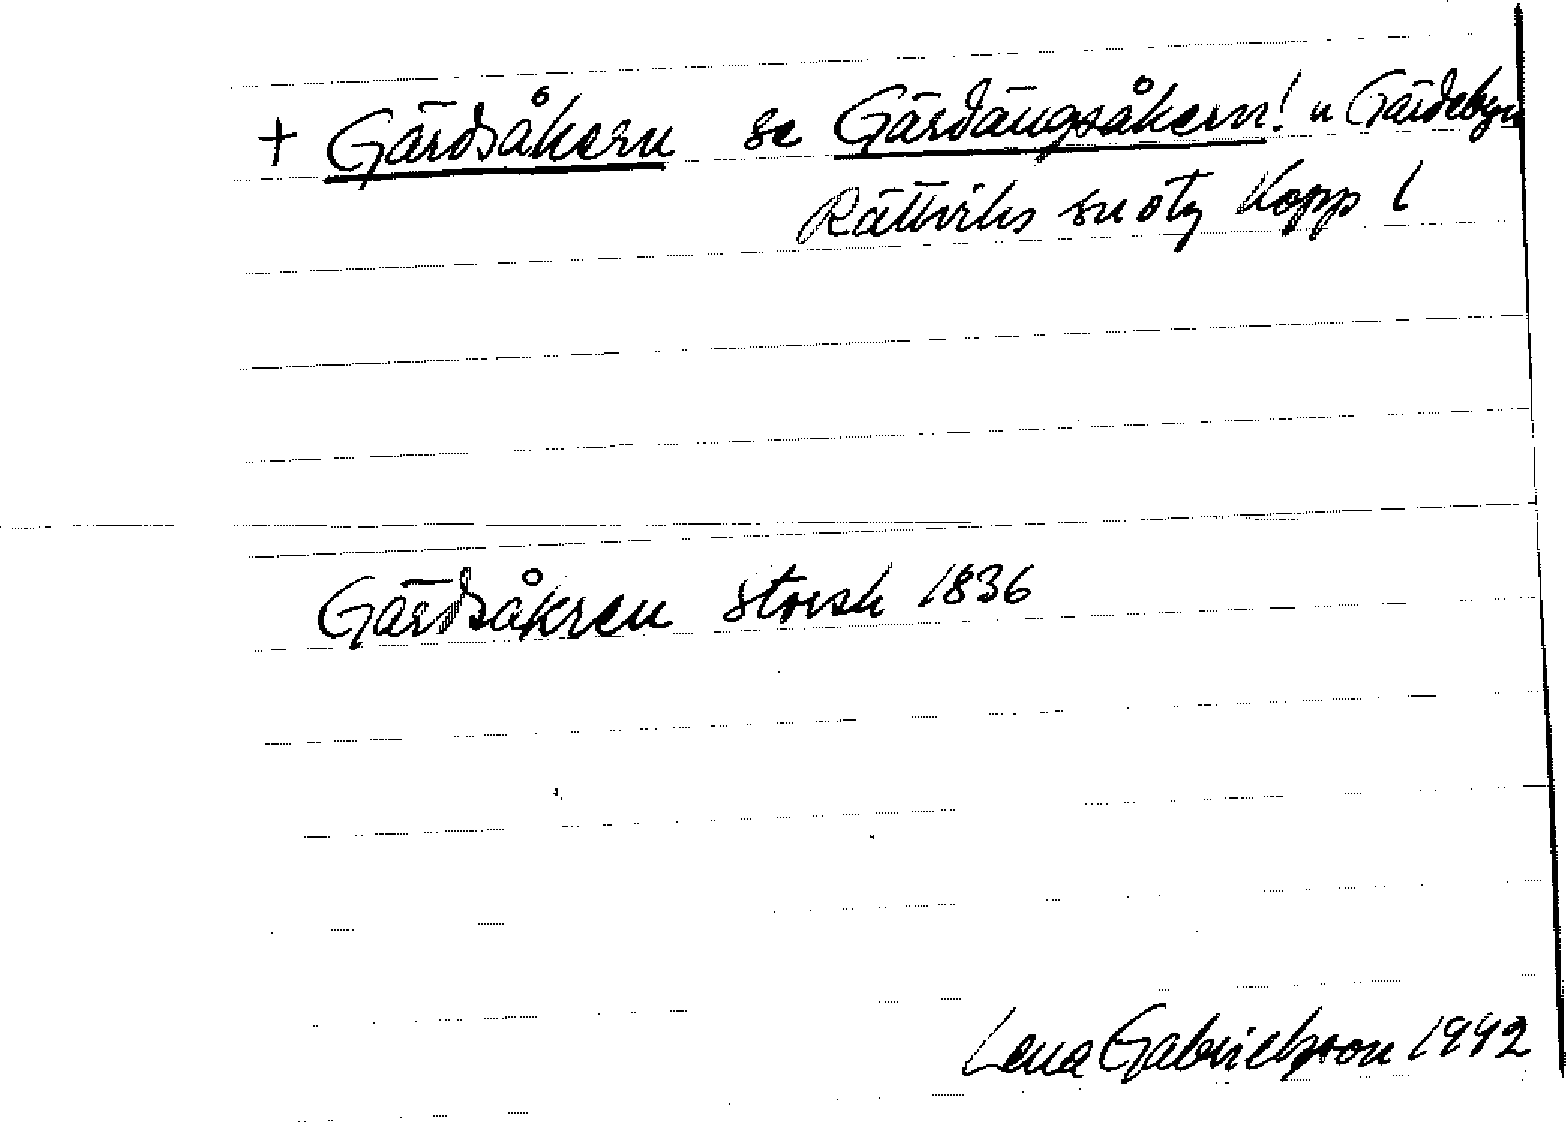 + Gärdsåkern se Gärdängsåkern! u Gärdebyn
Rättviks sn o tg Kopp l
Gärdsåkren storsk 1836
Lena Gabrielsson 1942